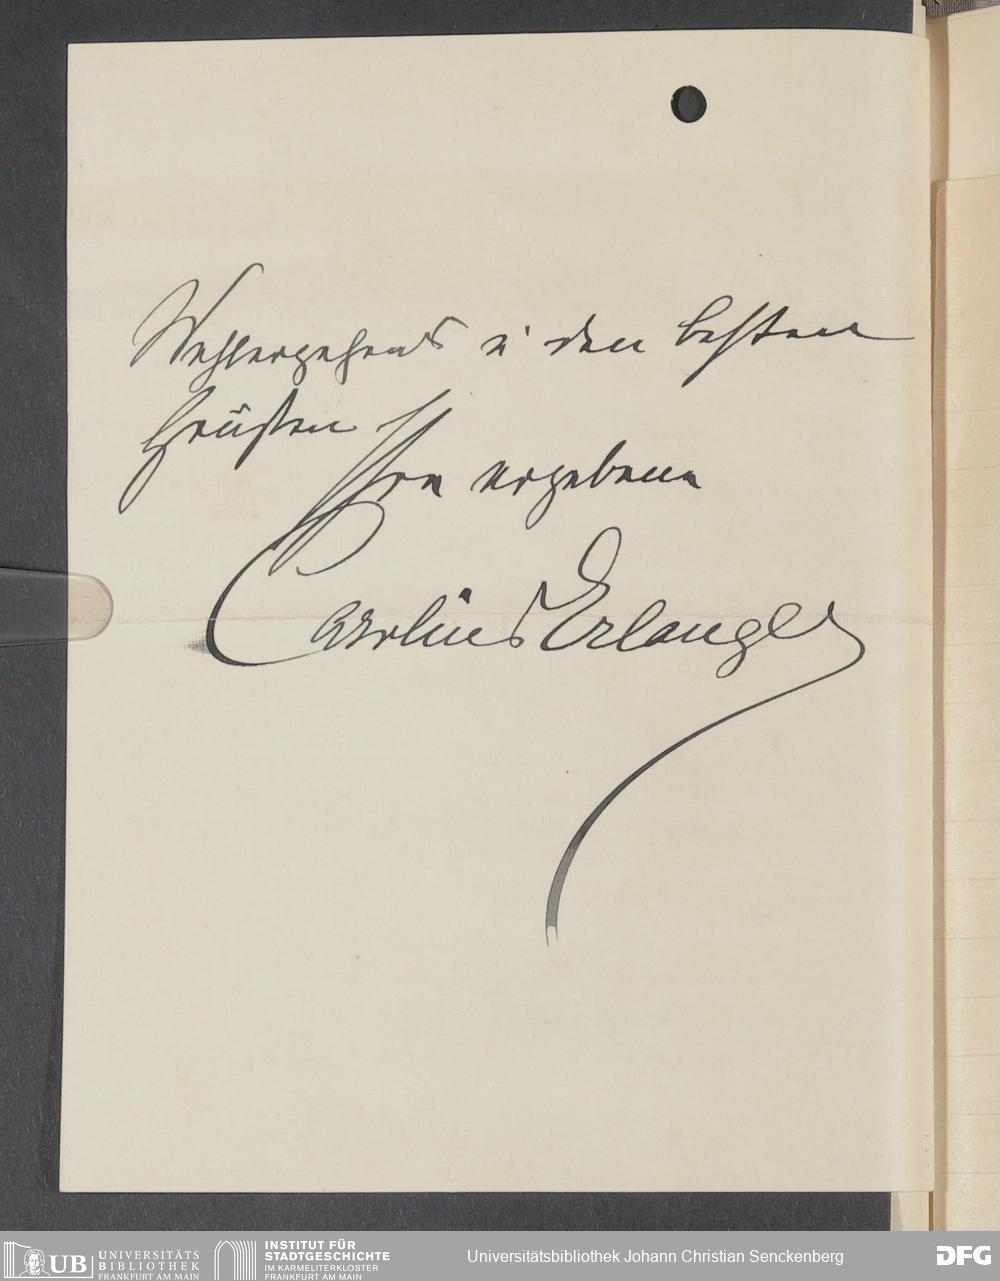 Wohlergehens u. den besten
Grüßen
Ihre ergebene
Caroline Erlanger
UB UNIVERSITÄTS
BIBLIOTHEK
FRANKFURT AM MAIN
INSTITUT FÜR
STADTGESCHICHTE
IM KARMELITERKLOSTER
FRANKFURT AM MAIN
Universitätsbibliothek Johann Christian Senckenberg
DFG